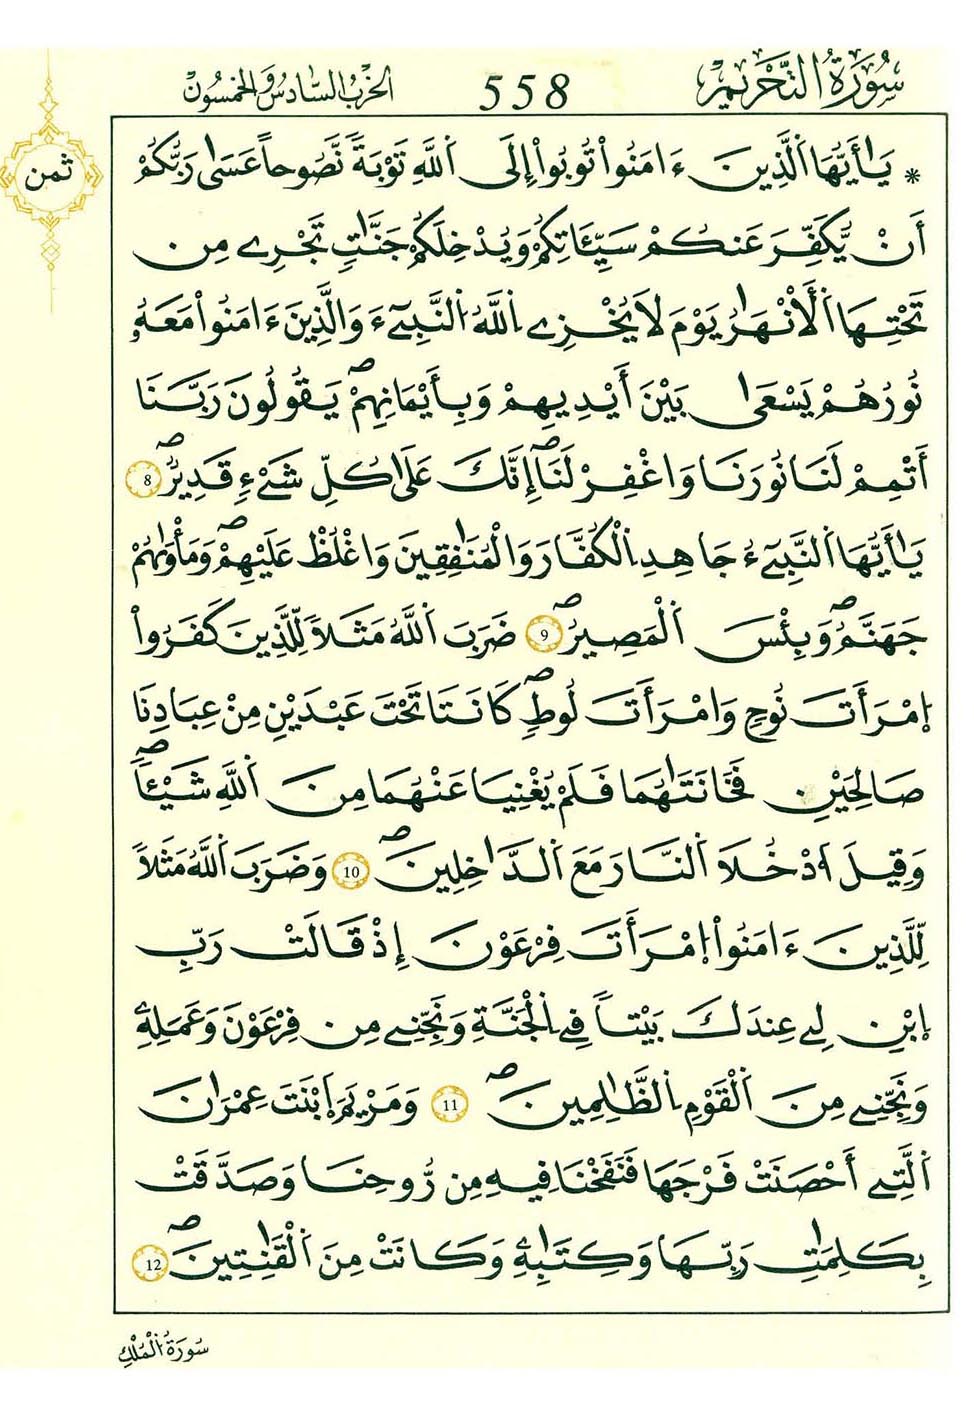 سُورَةُ التَّحْرِيمِ
558
الحزب السادس والخمسون
ثمن
* يَٰأَيُّهَا اَ۬لذِينَ ءَامَنُواْ تُوبُواْ إِلَى اَ۬للَّهِ تَوْبَةٗ نَّصُوحاً عَسَىٰ رَبُّكُمْ
أَنْ يُّكَفِّرَ عَنكُمْ سَيِّـَٔاتِكُمْ وَيُدْخِلَكُمْ جَنَّٰتٖ تَجْرِے مِن
تَحْتِهَا اَ۬لْأَنْهَٰرُ يَوْمَ لَا يُخْزِے اِ۬للَّهُ اُ۬لنَّبِےٓءَ وَالَّذِينَ ءَامَنُواْ مَعَهُۥ
نُورُهُمْ يَسْعَىٰ بَيْنَ أَيْدِيهِمْ وَبِأَيْمَٰنِهِمْ صه يَقُولُونَ رَبَّنَا
أَتْمِمْ لَنَا نُورَنَا وَاغْفِرْ لَنَا صه إِنَّكَ عَلَىٰ كُلِّ شَےْءٖ قَدِيرٞ صه 8
يَٰأَيُّهَا اَ۬لنَّبِےٓءُ جَٰهِدِ اِ۬لْكُفَّارَ وَالْمُنَٰفِقِينَ وَاغْلُظْ عَلَيْهِمْ صه وَمَأْوَىٰهُمْ
جَهَنَّمُ صه وَبِئْسَ اَ۬لْمَصِيرُ صه 9 ضَرَبَ اَ۬للَّهُ مَثَلاٗ لِّلَّذِينَ كَفَرُواْ
اِ۪مْرَأَتَ نُوحٖ وَامْرَأَتَ لُوطٖ صه كَانَتَا تَحْتَ عَبْدَيْنِ مِنْ عِبَادِنَا
صَالِحَيْنِ فَخَانَتَٰهُمَا فَلَمْ يُغْنِيَا عَنْهُمَا مِنَ اَ۬للَّهِ شَيْـٔاٗ صه
وَقِيلَ اَ۟دْخُلَا اَ۬لنَّارَ مَعَ اَ۬لدَّٰخِلِينَ صه 10 وَضَرَبَ اَ۬للَّهُ مَثَلاٗ
لِّلَّذِينَ ءَامَنُواْ اُ۪مْرَأَتَ فِرْعَوْنَ إِذْ قَالَتْ رَبِّ
اِ۪بْنِ لِے عِندَكَ بَيْتاٗ فِے اِ۬لْجَنَّةِ وَنَجِّنِے مِن فِرْعَوْنَ وَعَمَلِهِۦ
وَنَجِّنِے مِنَ اَ۬لْقَوْمِ اِ۬لظَّٰلِمِينَ صه 11 وَمَرْيَمَ اَ۪بْنَتَ عِمْرَٰنَ
اَ۬لَّتِے أَحْصَنَتْ فَرْجَهَا فَنَفَخْنَا فِيهِ مِن رُّوحِنَا وَصَدَّقَتْ
بِكَلِمَٰتِ رَبِّهَا وَكِتَٰبِهِۦ وَكَانَتْ مِنَ اَ۬لْقَٰنِتِينَ صه 12
سُورَةُ الْمُلْكِ